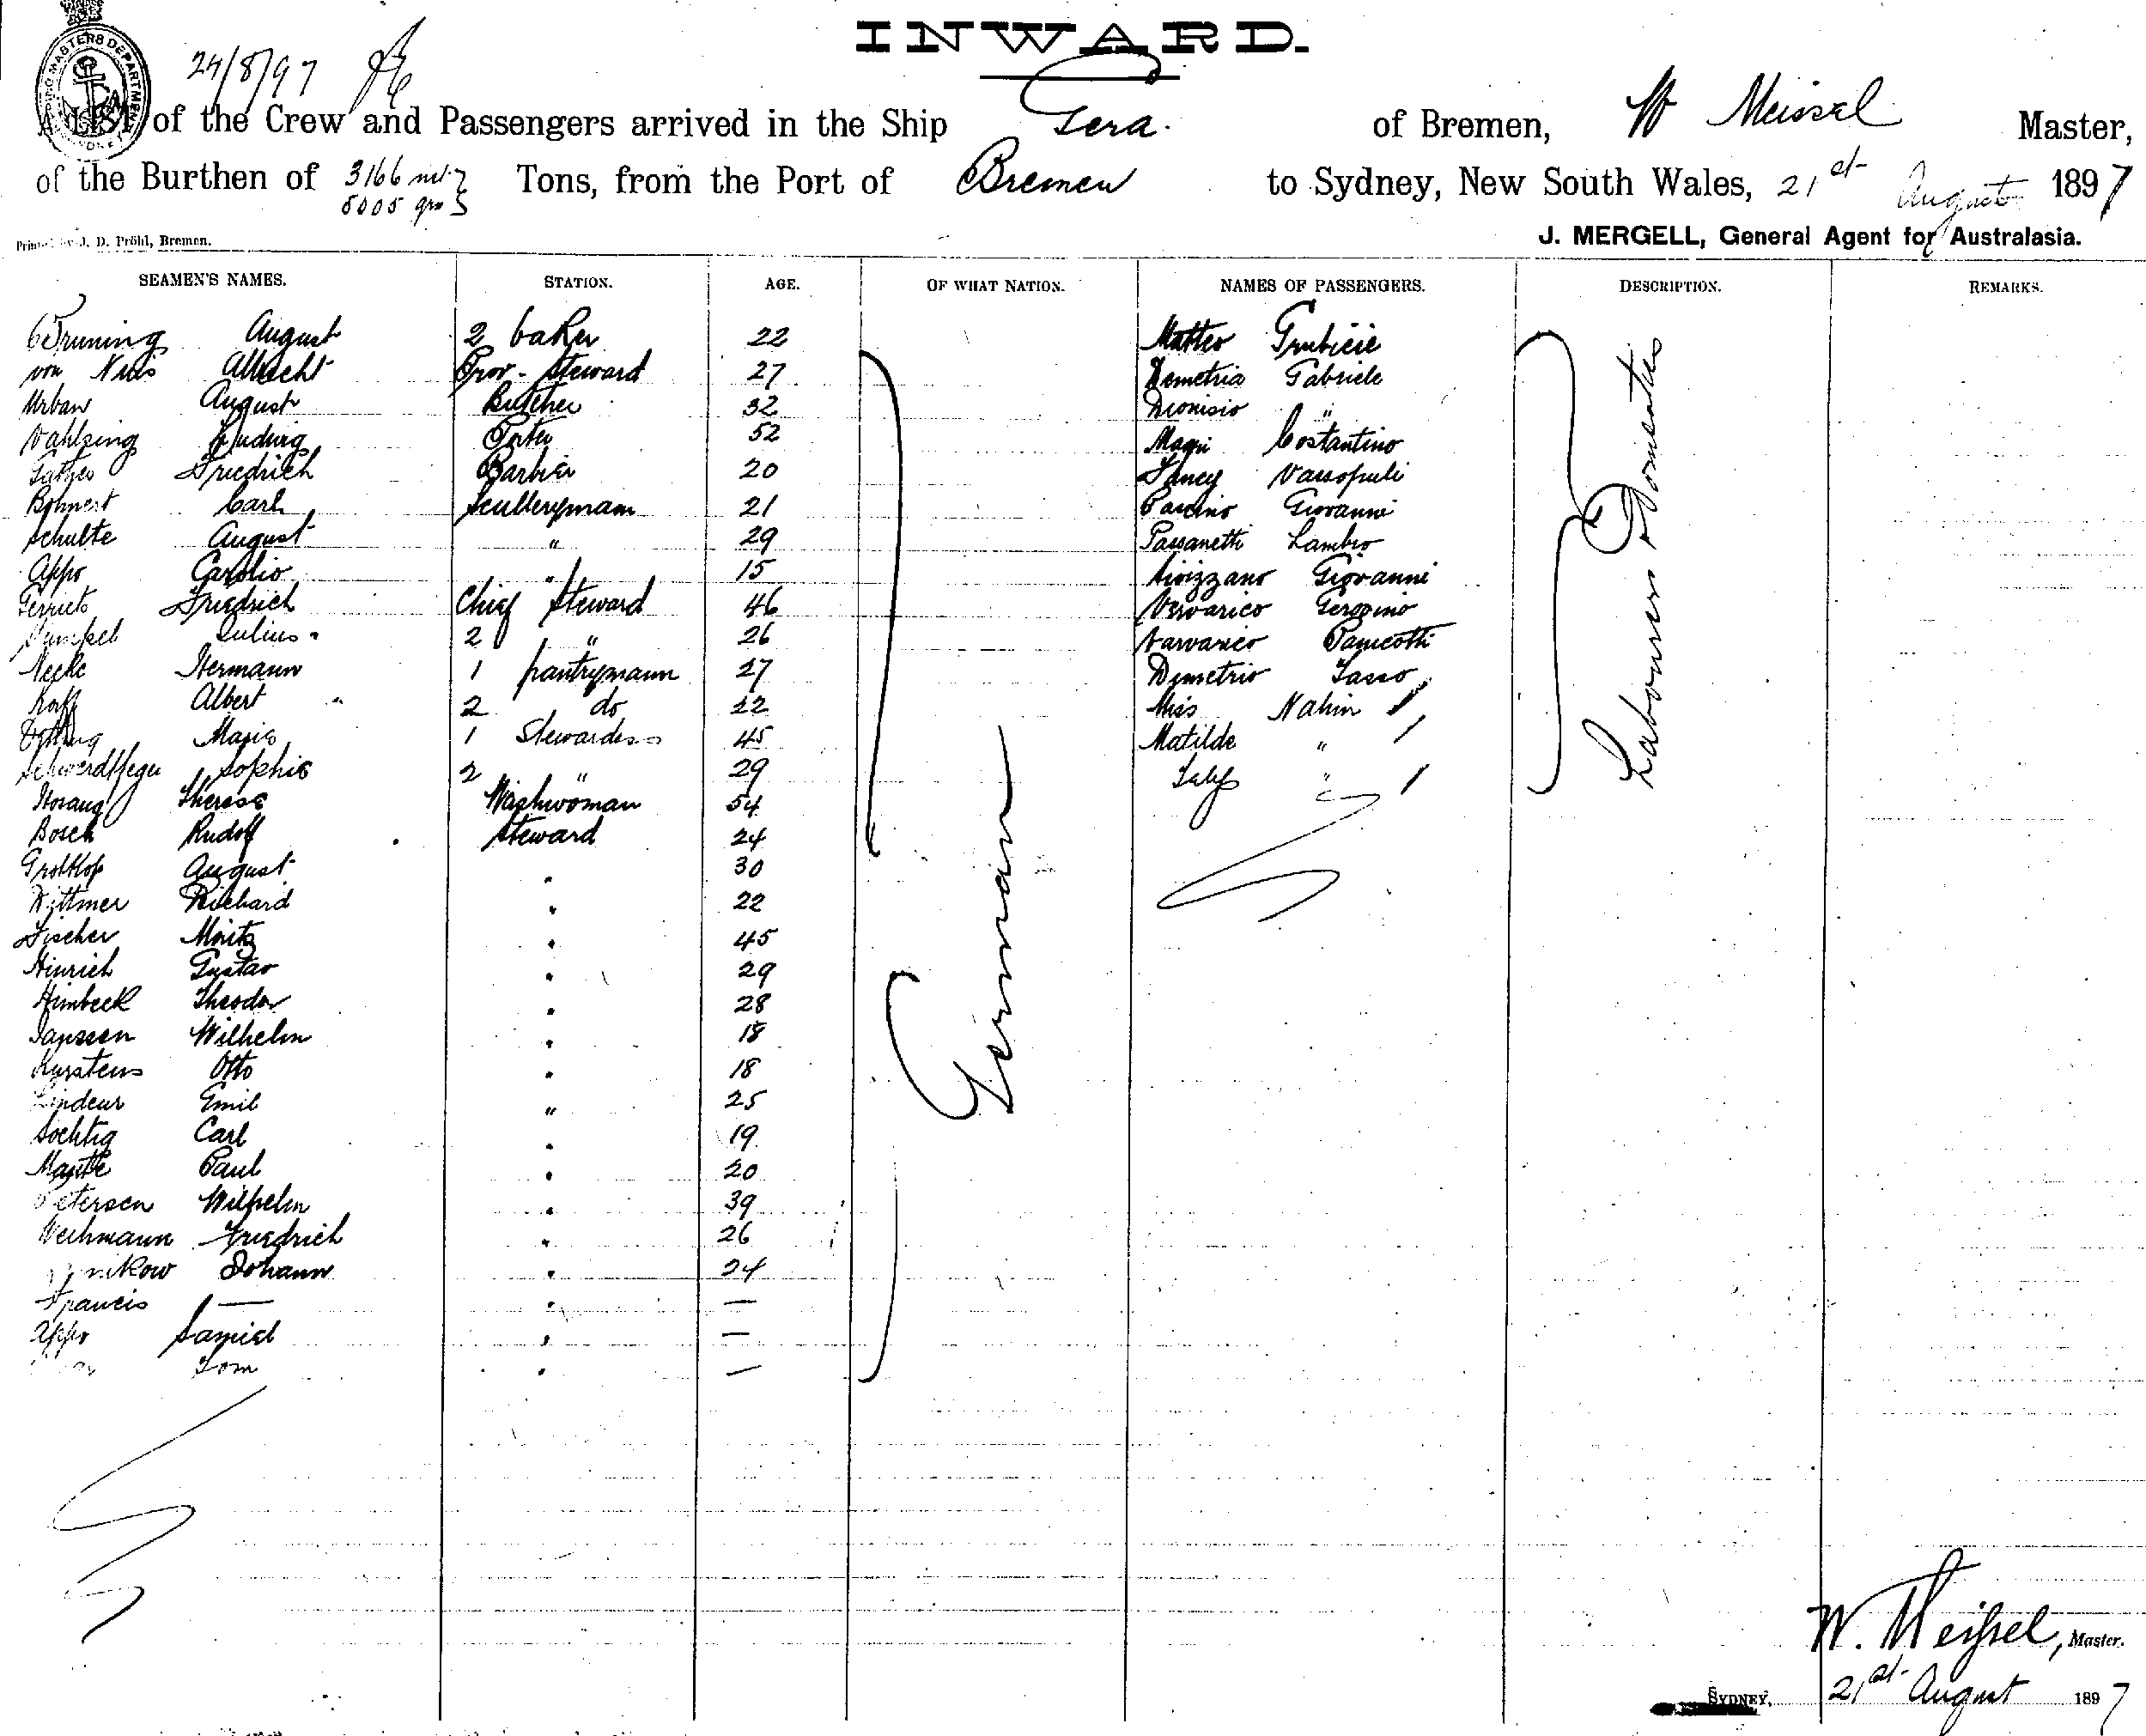 INWARD.
24/8/97
A LIST of the Crew and Passengers arrived in the Ship Gera. of Bremen, W Meissel Master,
of the Burthen of 3166 net 5005 grs Tons, from the Port of Bremen to Sydney, New South Wales, 21st August 1897
Printed by J. D. Pröhl, Bremen. J. MERGELL, General Agent for Australasia.
SEAMEN'S NAMES. STATION. AGE. OF WHAT NATION. NAMES OF PASSENGERS. DESCRIPTION. REMARKS.
Bruning August 2 baker 22 Matteo Grubicic
von Albrecht Prov-Steward 27 Demetria Gabriele
Urban August Butcher 32 Dionisio "
Vahlsing Ludwig Porter 52 Costantino
Friedrich Barbier 20 Vassopuli
Bohnert Carl Scullerymann 21 Giovanni
Schulte August " 29 Passanetti Lambro
Appo Carolio " 15 Giovanni
Gerriets Friedrich Chief Steward 46 Vervarico Geronimo
Julius 2 " 26 Varvarico Panicotti
Hermann 1 pantrymann 27 Demetrio Tasso
Albert 2 do 22 Miss Nahin
Marie 1 Stewardess 45 Matilde "
Schwerdtfeger Sophie 2 " 29 "
Therese Washwoman 54
Bosch Rudolf Steward 24
August " 30
Dittmer Richard " 22
Fischer Moritz " 45
Hinrich Gustav " 29
Himbeck Theodor " 28
Janssen Wilhelm " 18
Karstens Otto " 18
Emil " 25
Sochtig Carl " 19
Paul " 20
Petersen Wilhelm " 39
Weihmann Friedrich " 26
Johann " 24
Francis — " —
Appo Samiel " —
Tom " —
German
Labourers Domestics
W. Meissel, Master.
SYDNEY, 21st August 1897